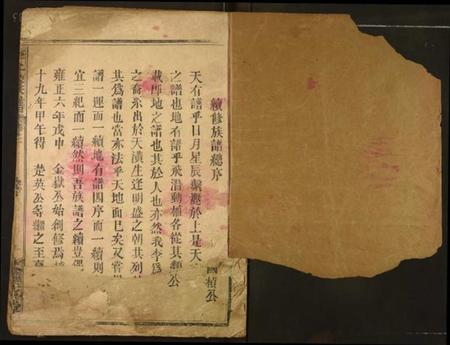 續修族譜總序
天有譜乎日月星辰
於上是天
之譜也地有譜乎飛潛動植各從其類
載即地之譜也其於人也亦然我李
之裔派出於天潢生逢明盛之朝其列
其為譜也當亦法乎天地而已矣又嘗
譜一運而一續地有譜因序而一續則
宜三祀而一續然則吾族譜之續豈
雍正六年戊申 金嶽公始創修焉
十九年甲午得 楚英公等繼之至
國楨公
族譜